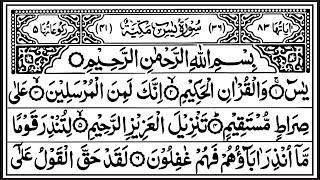 اٰيَاتُهَا ٨٣ (٣٦) سُوْرَةُ يٰسٓ مَكِّيَّةٌ (٤١) رُكُوْعَاتُهَا ٥
بِسْمِ اللّٰهِ الرَّحْمٰنِ الرَّحِيْمِ
يٰسٓ وَالْقُرْاٰنِ الْحَكِيْمِ اِنَّكَ لَمِنَ الْمُرْسَلِيْنَ عَلٰى
صِرَاطٍ مُّسْتَقِيْمٍ تَنْزِيْلَ الْعَزِيْزِ الرَّحِيْمِ لِتُنْذِرَ قَوْمًا
مَّآ اُنْذِرَ اٰبَآؤُهُمْ فَهُمْ غٰفِلُوْنَ لَقَدْ حَقَّ الْقَوْلُ عَلٰٓى